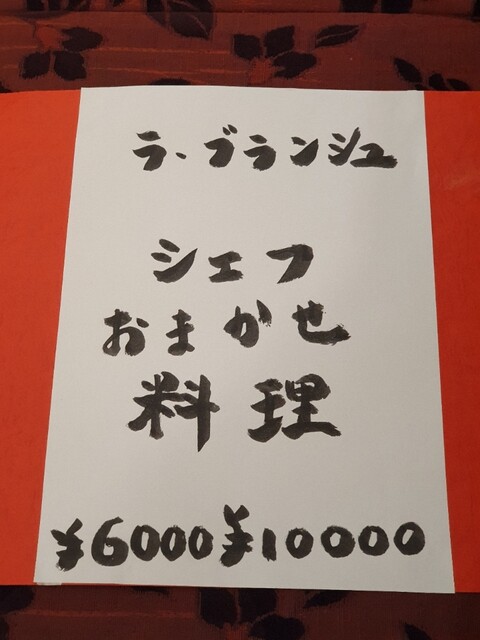 ラ・ブランシュ
シェフ
おまかせ
料理
¥6000 ¥10000